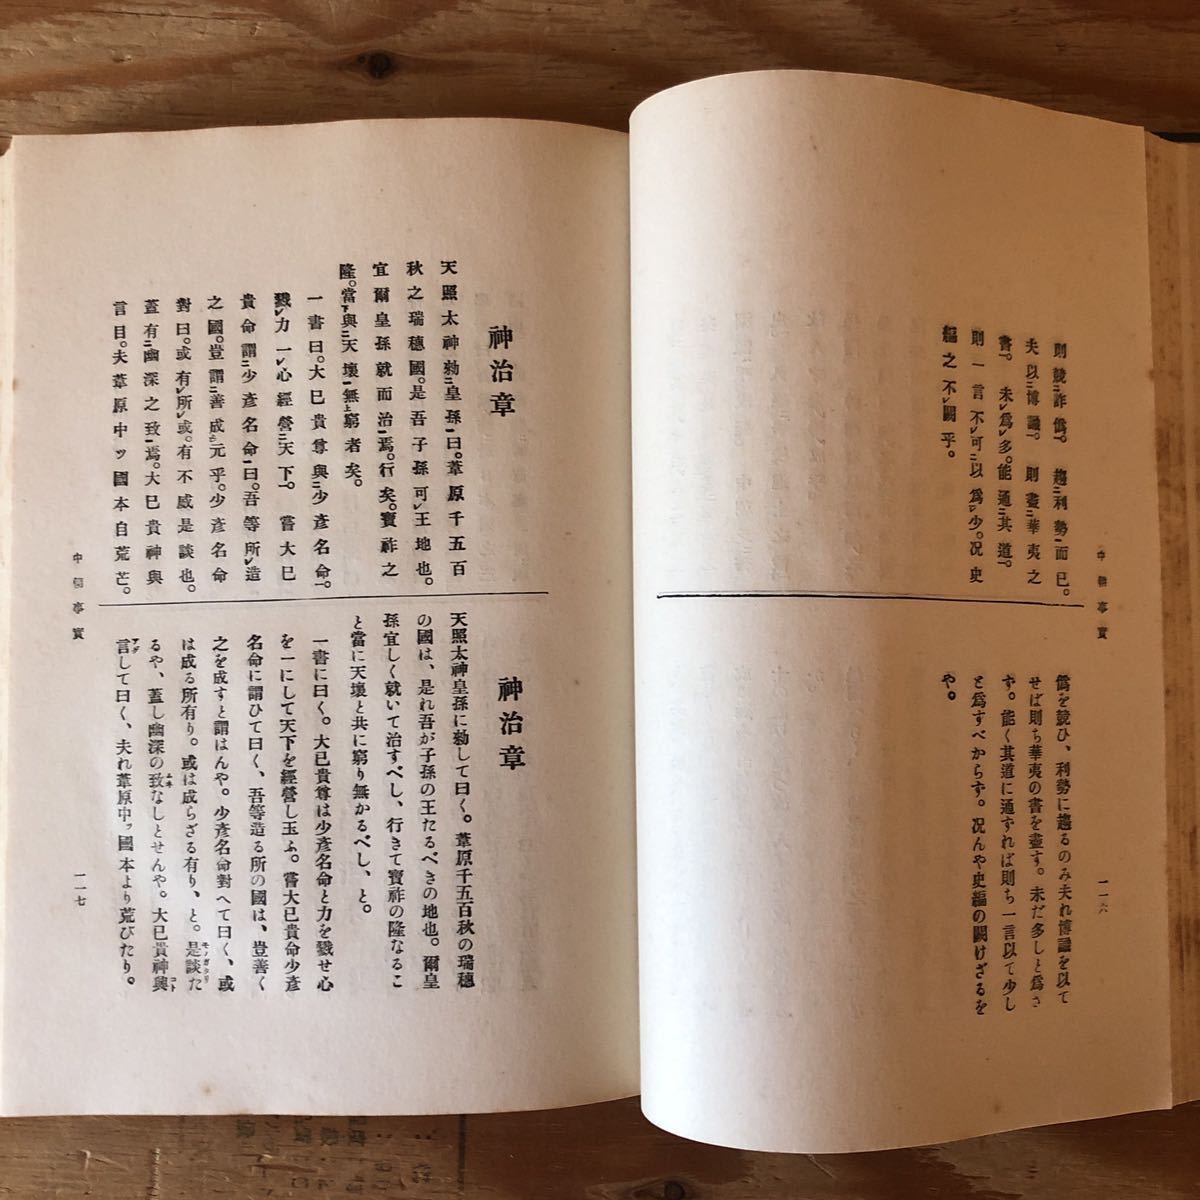 中朝事實
則競詐僞。趨利勢而已。
夫以博識。則盡華夷之
書。未爲多。能通其道。
則一言不可以爲少。况史
編之不闕乎。
一一六
僞を競ひ、利勢に趨るのみ夫れ博識を以て
せば則ち華夷の書を盡す。未だ多しと爲さ
ず。能く其道に通ずれば則ち一言以て少し
と爲すべからず。况んや史編の闕けざるを
や。
神治章
天照太神勅皇孫曰。葦原千五百
秋之瑞穗國。是吾子孫可王地也。
宜爾皇孫就而治焉。行矣。寶祚之
隆。當與天壤無窮者矣。
一書曰。大已貴尊與少彦名命。
戮力一心經營天下。嘗大已
貴命謂少彦名命曰。吾等所造
之國。豈謂善成元乎。少彦名命
對曰。或有所或。有不威是談也。
蓋有幽深之致焉。大已貴神興
言目。夫葦原中ッ國本自荒芒。
中朝事實
神治章
天照太神皇孫に勅して曰く。葦原千五百秋の瑞穗
の國は、是れ吾が子孫の王たるべきの地也。爾皇
孫宜しく就いて治すべし、行きて寶祚の隆なるこ
と當に天壤と共に窮り無かるべし、と。
一書に曰く。大已貴尊は少彦名命と力を戮せ心
を一にして天下を經營し玉ふ。嘗大已貴命少彦
名命に謂ひて曰く、吾等造る所の國は、豈善く
之を成すと謂はんや。少彦名命對へて曰く、或
は成る所有り。或は成らざる有り、と。是談た
るや、蓋し幽深の致なしとせんや。大已貴神興
言して曰く、夫れ葦原中ッ國本より荒びたり。
一一七